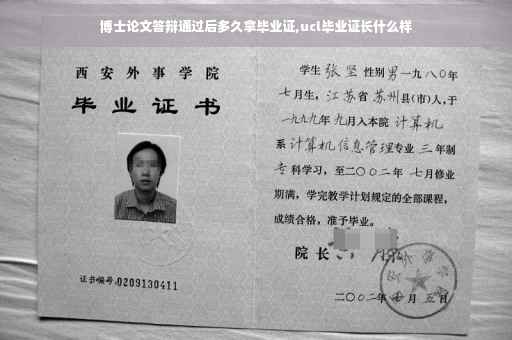 博士论文答辩通过后多久拿毕业证,ucl毕业证长什么样
西安外事学院
毕业证书
证书编号:0209130411
学生 张坚 性别 男 一九八〇年
七月生, 江苏省 苏州 县(市)人,于
一九九九年 九月入本院 计算机
系 计算机信息管理 专业 三 年制
专 科学习, 至二〇〇二年 七月修业
期满, 学完教学计划规定的全部课程,
成绩合格, 准予毕业。
院长
二〇〇二年 月 五日